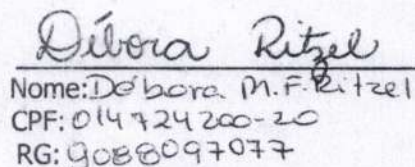 Débora Ritzel
Nome: Débora M.F. Ritzel
CPF: 014724200-20
RG: 9088097077